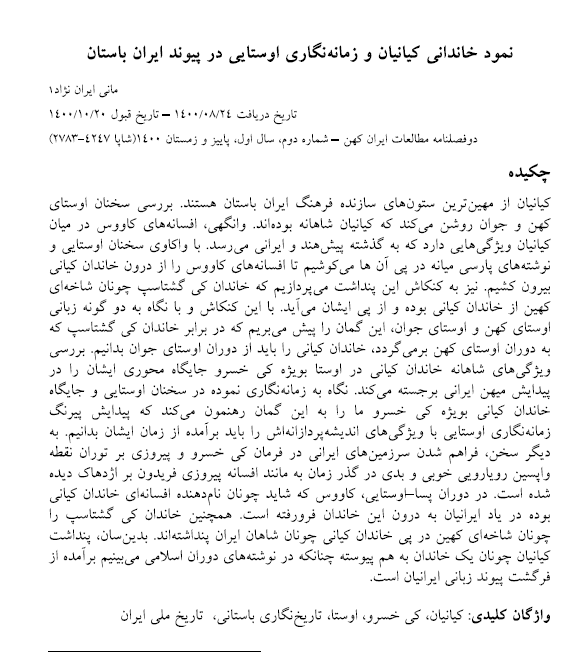 نمود خاندانی کیانیان و زمانه‌نگاری اوستایی در پیوند ایران باستان
مانی ایران نژاد۱
تاریخ دریافت ۱۴۰۰/۰۸/۲۴ – تاریخ قبول ۱۴۰۰/۱۰/۲۰
دوفصلنامه مطالعات ایران کهن – شماره دوم، سال اول، پاییز و زمستان ۱۴۰۰(شاپا ۴۲۴۷-۲۷۸۳)
چکیده
کیانیان از مهین‌ترین ستون‌های سازنده فرهنگ ایران باستان هستند. بررسی سخنان اوستای
کهن و جوان روشن می‌کند که کیانیان شاهانه بوده‌اند. وانگهی، افسانه‌های کاووس در میان
کیانیان ویژگی‌هایی دارد که به گذشته پیش‌هند و ایرانی می‌رسد. با واکاوی سخنان اوستایی و
نوشته‌های پارسی میانه در پی آن ها می‌کوشیم تا افسانه‌های کاووس را از درون خاندان کیانی
بیرون کشیم. نیز به کنکاش این پنداشت می‌پردازیم که خاندان کی گشتاسپ چونان شاخه‌ای
کهین از خاندان کیانی بوده و از پی ایشان می‌آید. با این کنکاش و با نگاه به دو گونه زبانی
اوستای کهن و اوستای جوان، این گمان را پیش می‌بریم که در برابر خاندان کی گشتاسپ که
به دوران اوستای کهن برمی‌گردد، خاندان کیانی را باید از دوران اوستای جوان بدانیم. بررسی
ویژگی‌های شاهانه خاندان کیانی در اوستا بویژه کی خسرو جایگاه محوری ایشان را در
پیدایش میهن ایرانی برجسته می‌کند. نگاه به زمانه‌نگاری نموده در سخنان اوستایی و جایگاه
خاندان کیانی بویژه کی خسرو ما را به این گمان رهنمون می‌کند که پیدایش پیرنگ
زمانه‌نگاری اوستایی با ویژگی‌های اندیشه‌پردازانه‌اش را باید برآمده از زمان ایشان بدانیم. به
دیگر سخن، فراهم شدن سرزمین‌های ایرانی در فرمان کی خسرو و پیروزی بر توران نقطه
واپسین رویارویی خوبی و بدی در گذر زمان به مانند افسانه پیروزی فریدون بر اژدهاک دیده
شده است. در دوران پسا-اوستایی، کاووس که شاید چونان نام‌دهنده افسانه‌ای خاندان کیانی
بوده در یاد ایرانیان به درون این خاندان فرورفته است. همچنین خاندان کی گشتاسپ را
چونان شاخه‌ای کهین در پی خاندان کیانی چونان شاهان ایران پنداشته‌اند. بدین‌سان، پنداشت
کیانیان چونان یک خاندان به هم پیوسته چنانکه در نوشته‌های دوران اسلامی می‌بینیم برآمده از
فرگشت پیوند زبانی ایرانیان است.
واژگان کلیدی: کیانیان، کی خسرو، اوستا، تاریخ‌نگاری باستانی، تاریخ ملی ایران